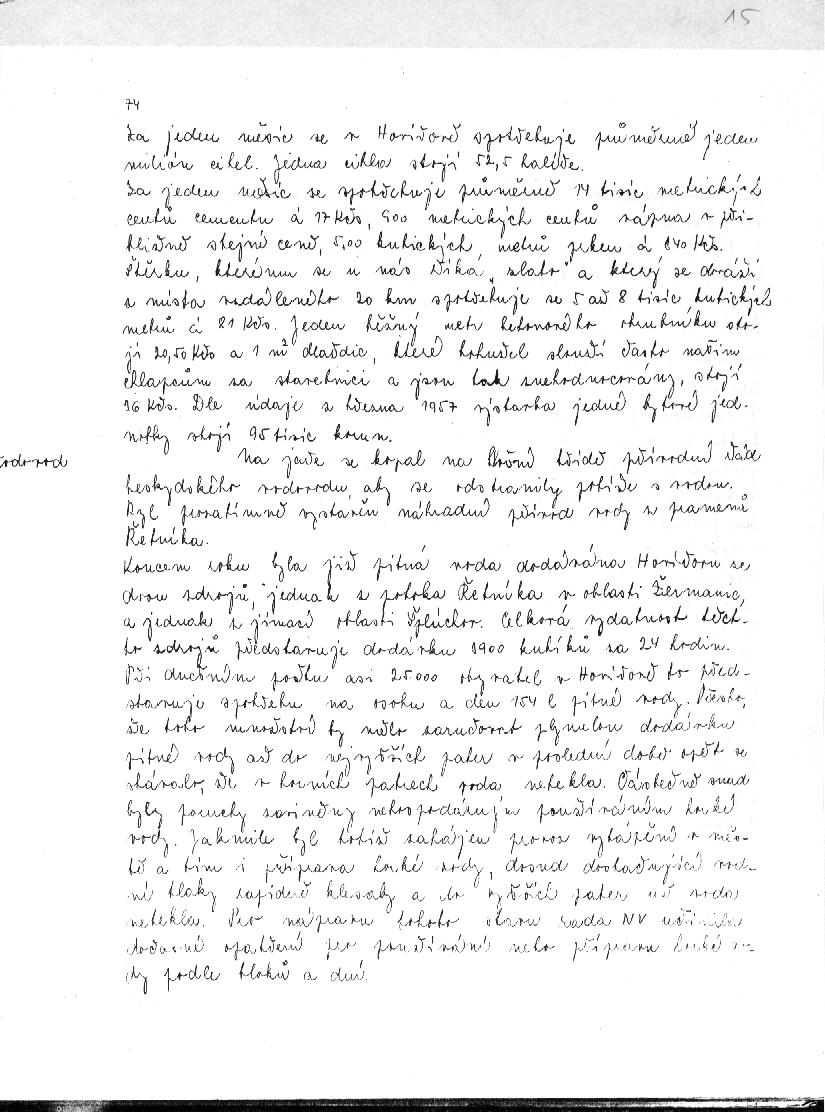 15
74
Za jeden měsíc se v Havířově spotřebuje průměrně jeden
milión cihel. Jedna cihla stojí 52,5 haléře.
Za jeden měsíc se spotřebuje průměrně 14 tisíc metrických
centů cementu á 17 Kčs, 900 metrických centů vápna v při-
bližně stejné ceně, 5,00 kubických metrů prken á 840 Kčs.
Štěrku, kterému se u nás říká „zlato" a který se dováží
z místa vzdáleného 20 km spotřebuje se 5 až 8 tisíc kubických
metrů á 81 Kčs. Jeden běžný metr betonového obrubníku sto-
jí 20,50 Kčs a 1 m² dlaždic, které bohužel slouží často našim
chlapcům za stavebnici a jsou tak znehodnocovány, stojí
36 Kčs. Dle údaje z března 1957 výstavba jedné bytové jed-
notky stojí 95 tisíc korun.
vodovod
Na jaře se kopal na hlavní třídě přívodní řád
beskydského vodovodu, aby se odstranily potíže s vodou.
Byl prozatímně vystavěn náhradní přívod vody z pramenů
Řetníka.
Koncem roku byla již pitná voda dodávána Havířovu ze
dvou zdrojů, jednak z potoka Řetníka v oblasti Žermanic,
a jednak z jímací oblasti Šplúchov. Celková vydatnost těch-
to zdrojů představuje dodávku 3900 kubíků za 24 hodin.
Při dnešním počtu asi 25.000 obyvatel v Havířově to před-
stavuje spotřebu na osobu a den 154 l pitné vody. Přesto,
že toto množství by mělo zaručovat plynulou dodávku
pitné vody až do nejvyšších pater v poslední době opět se
stávalo, že v horních patrech voda netekla. Částečně snad
byly poruchy zaviněny nehospodárným používáním horké
vody. Jakmile byl totiž zahájen provoz vytápění v měs-
tě a tím i příprava horké vody, dosud dostačující vod-
ní tlaky rapidně klesaly a do vyšších pater už voda
netekla. Pro nápravu tohoto stavu rada NV učinila
dočasné opatření pro používání nebo přípravu horké vo-
dy podle bloků a dní.